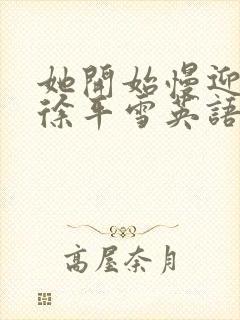 她開始慢迎
徐平雪英語
高屋奈月